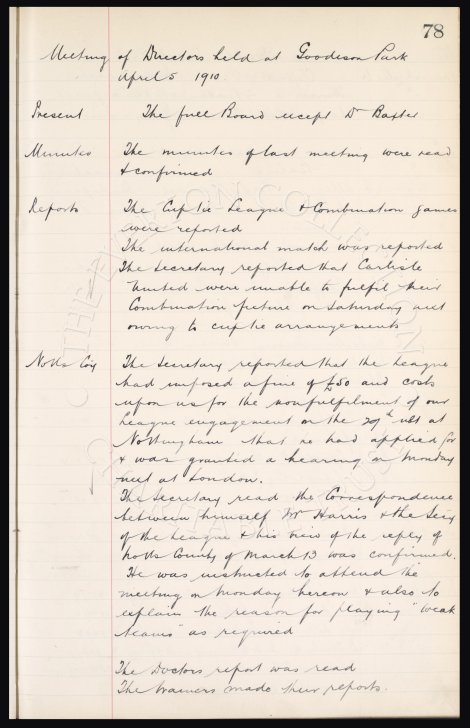 78
Meeting of Directors held at Goodison Park
April 5 1910.
Present The full Board except Dr Baxter
Minutes The minutes of last meeting were read
& confirmed
Reports The Cuptie League & Combination games
were reported
The international match was reported
The Secretary reported that Carlisle
United were unable to fulfil their
Combination fixture on Saturday next
owing to cuptie arrangements
Notts Coy The Secretary reported that the League
had imposed a fine of £50 and costs
upon us for the nonfulfilment of our
League engagement on the 29th ult at
Nottingham that he had applied for
& was granted a hearing on Monday
next at London.
The Secretary read the Correspondence
between himself Mr Harris & the Secy
of the League & his view of the reply of
Notts County of March 13 was confirmed.
He was instructed to attend the
meeting on Monday hereon & also to
explain the reason for playing "weak
teams" as required
The Doctors report was read
The trainers made their reports.
THE EVERTON COLLECTION